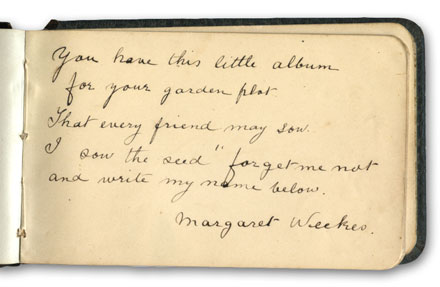 You have this little album
for your garden plot
That every friend may sow.
I sow the seed "forget me not
and write my name below.
Margaret Weekes.